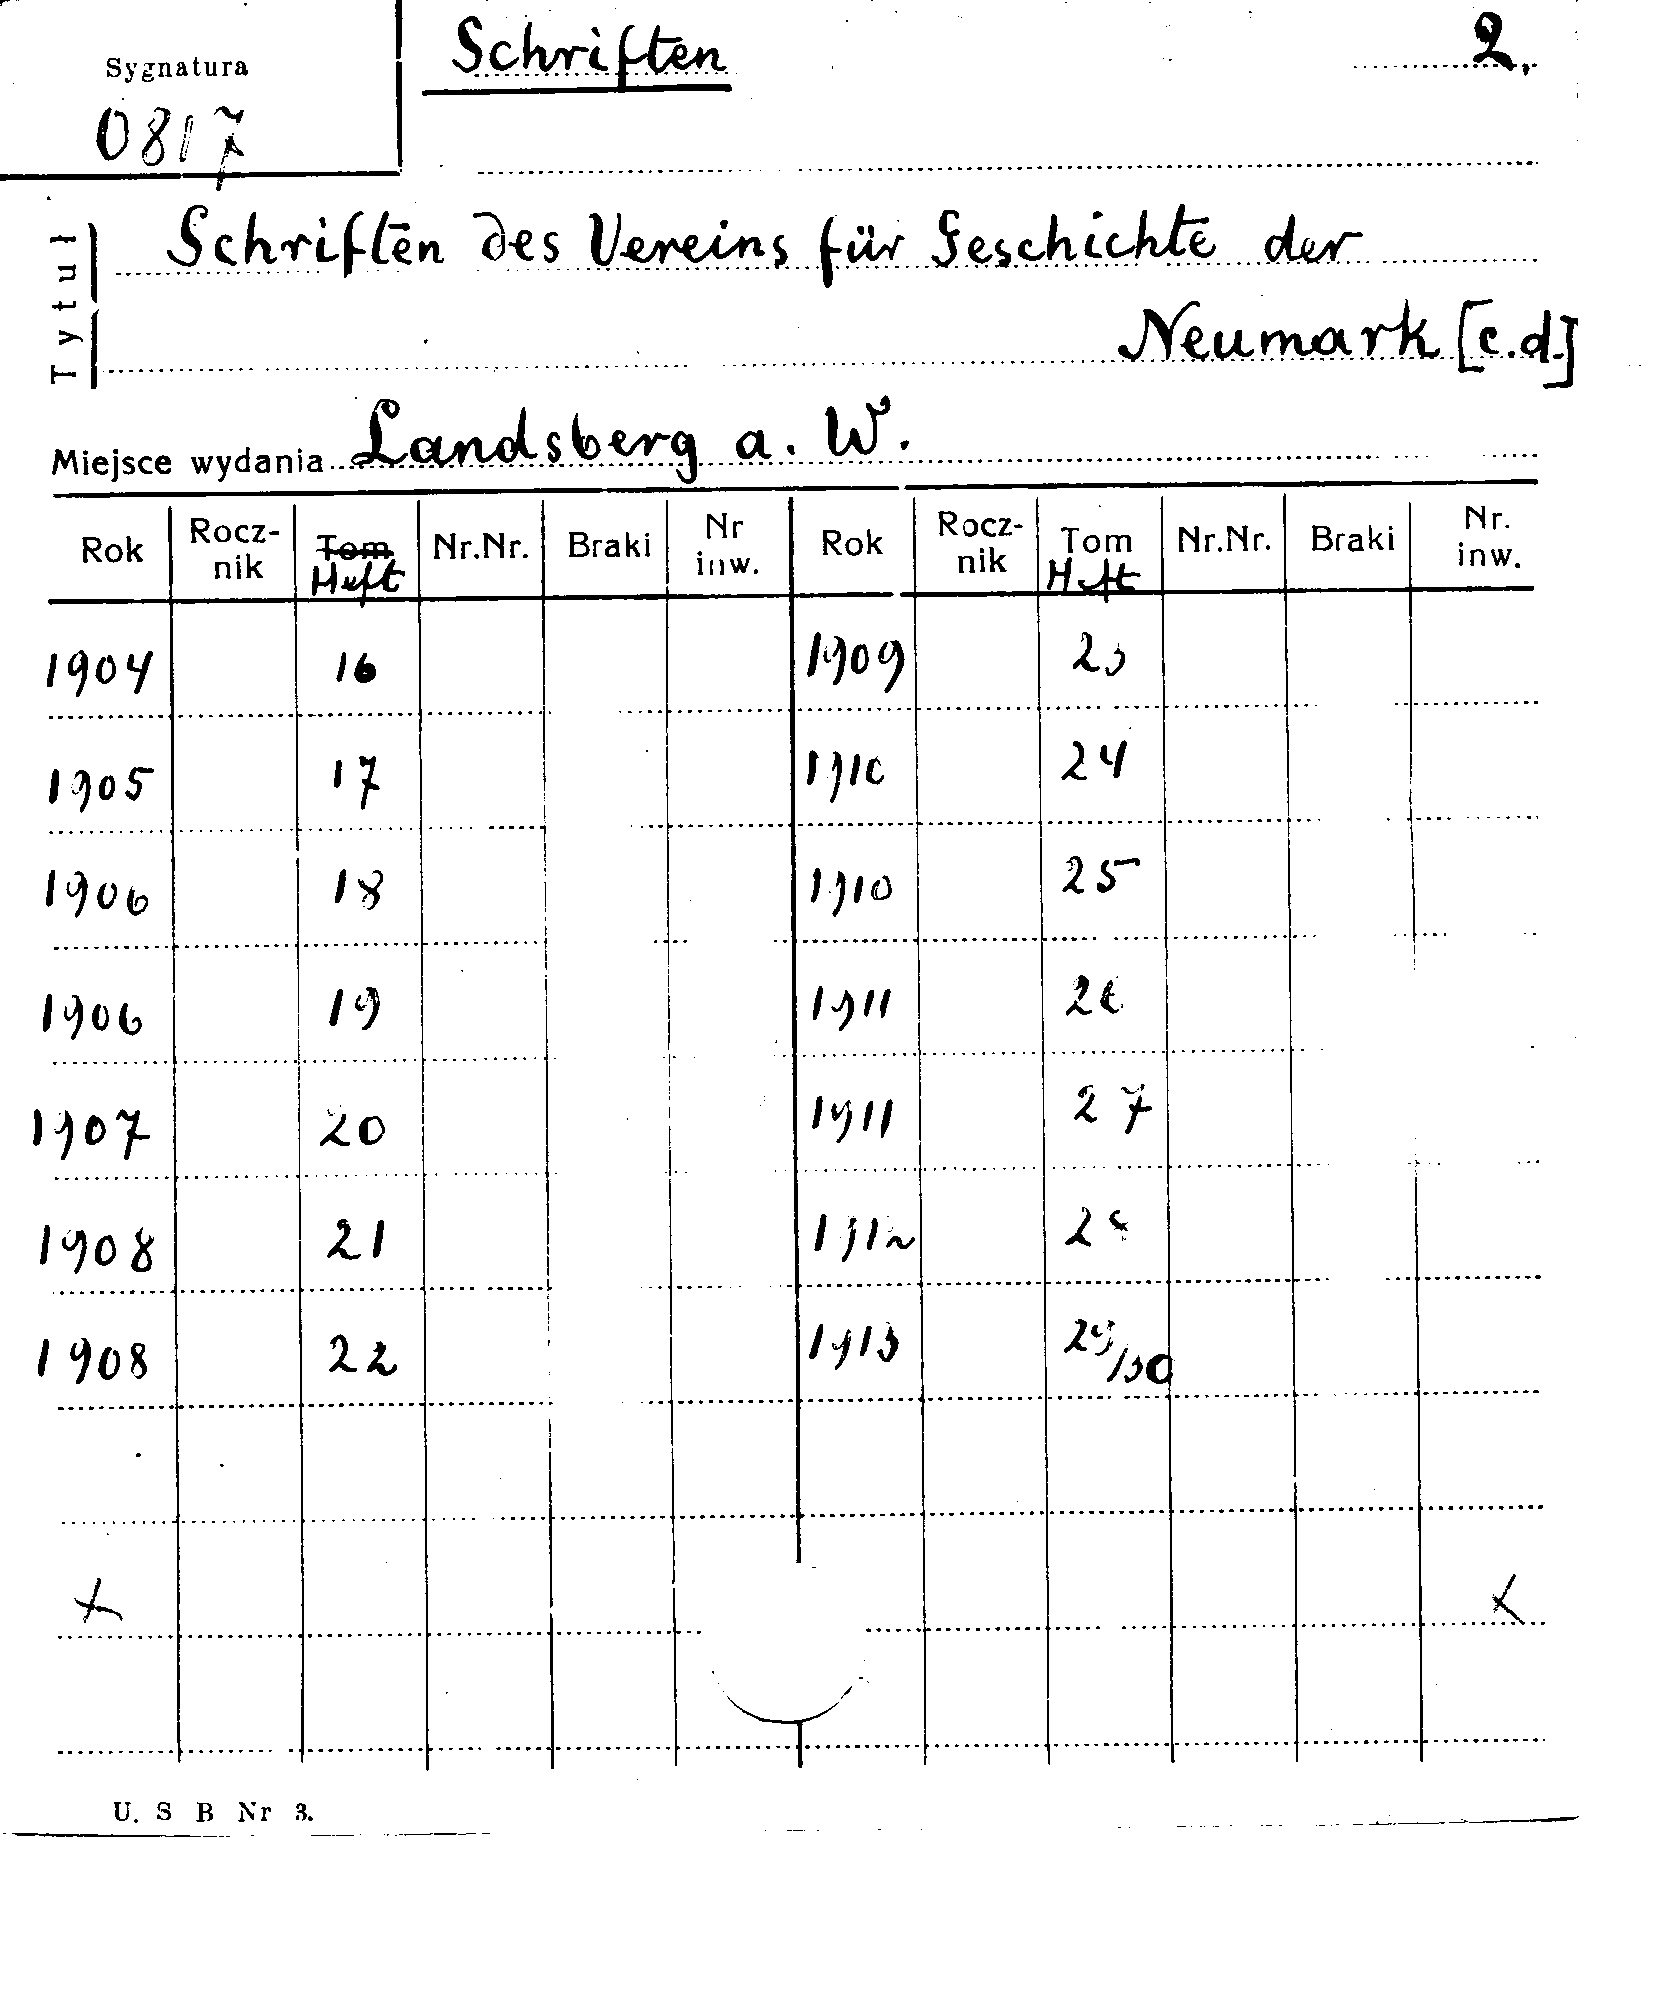 Schriften 2.
Sygnatura
0817
Tytuł
Schriften des Vereins für Geschichte der
Neumark [c.d.]
Miejsce wydania Landsberg a. W.
Rok Rocz-nik Tom Heft Nr.Nr. Braki Nr inw. Rok Rocz-nik Tom Heft Nr.Nr. Braki Nr. inw.
1904 16 1909 23
1905 17 1910 24
1906 18 1910 25
1906 19 1911 26
1907 20 1911 27
1908 21 1912 28
1908 22 1913 29/30
U. S B Nr 3.